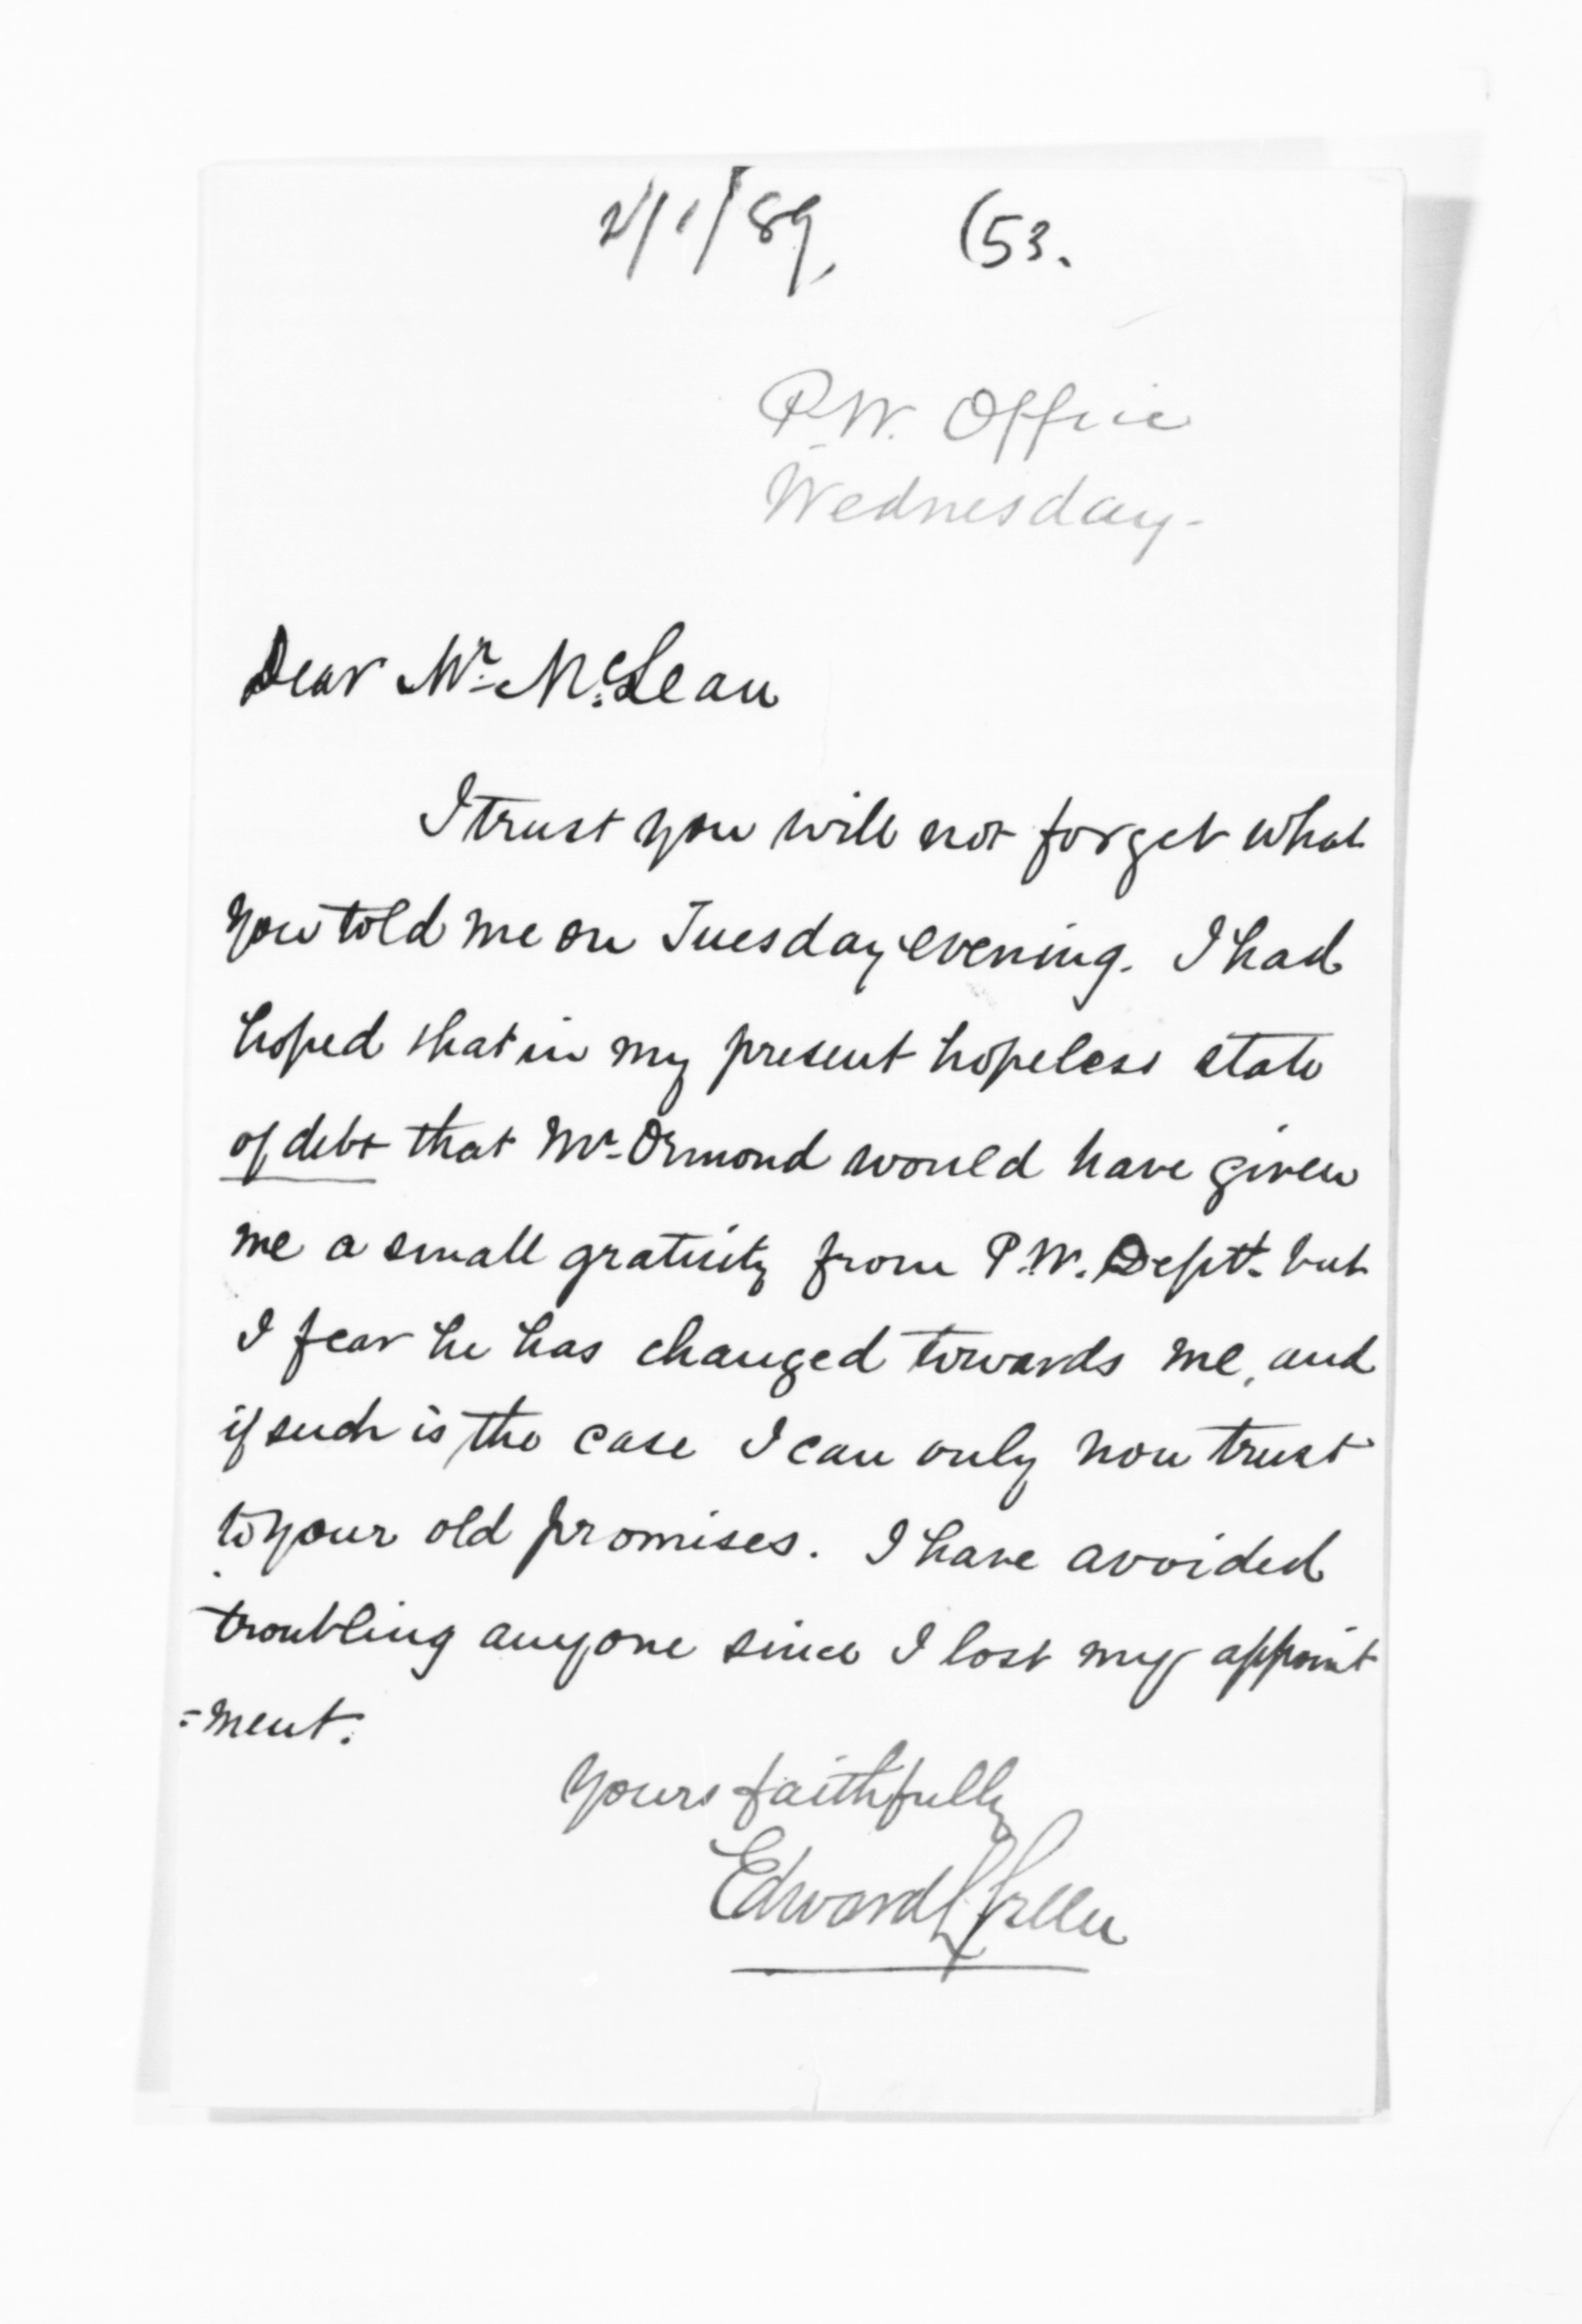 2/1/89, (53.
P.W. Office
Wednesday-
Dear Mr. McLean
I trust you will not forget what
you told me on Tuesday evening. I had
hoped that in my present hopeless state
of debt that Mr. Ormond would have given
me a small gratuity from P.W. Deptt. but
I fear he has changed towards me, and
if such is the case I can only now trust
to your old promises. I have avoided
troubling anyone since I lost my appoint
=ment.
Yours faithfully
Edward